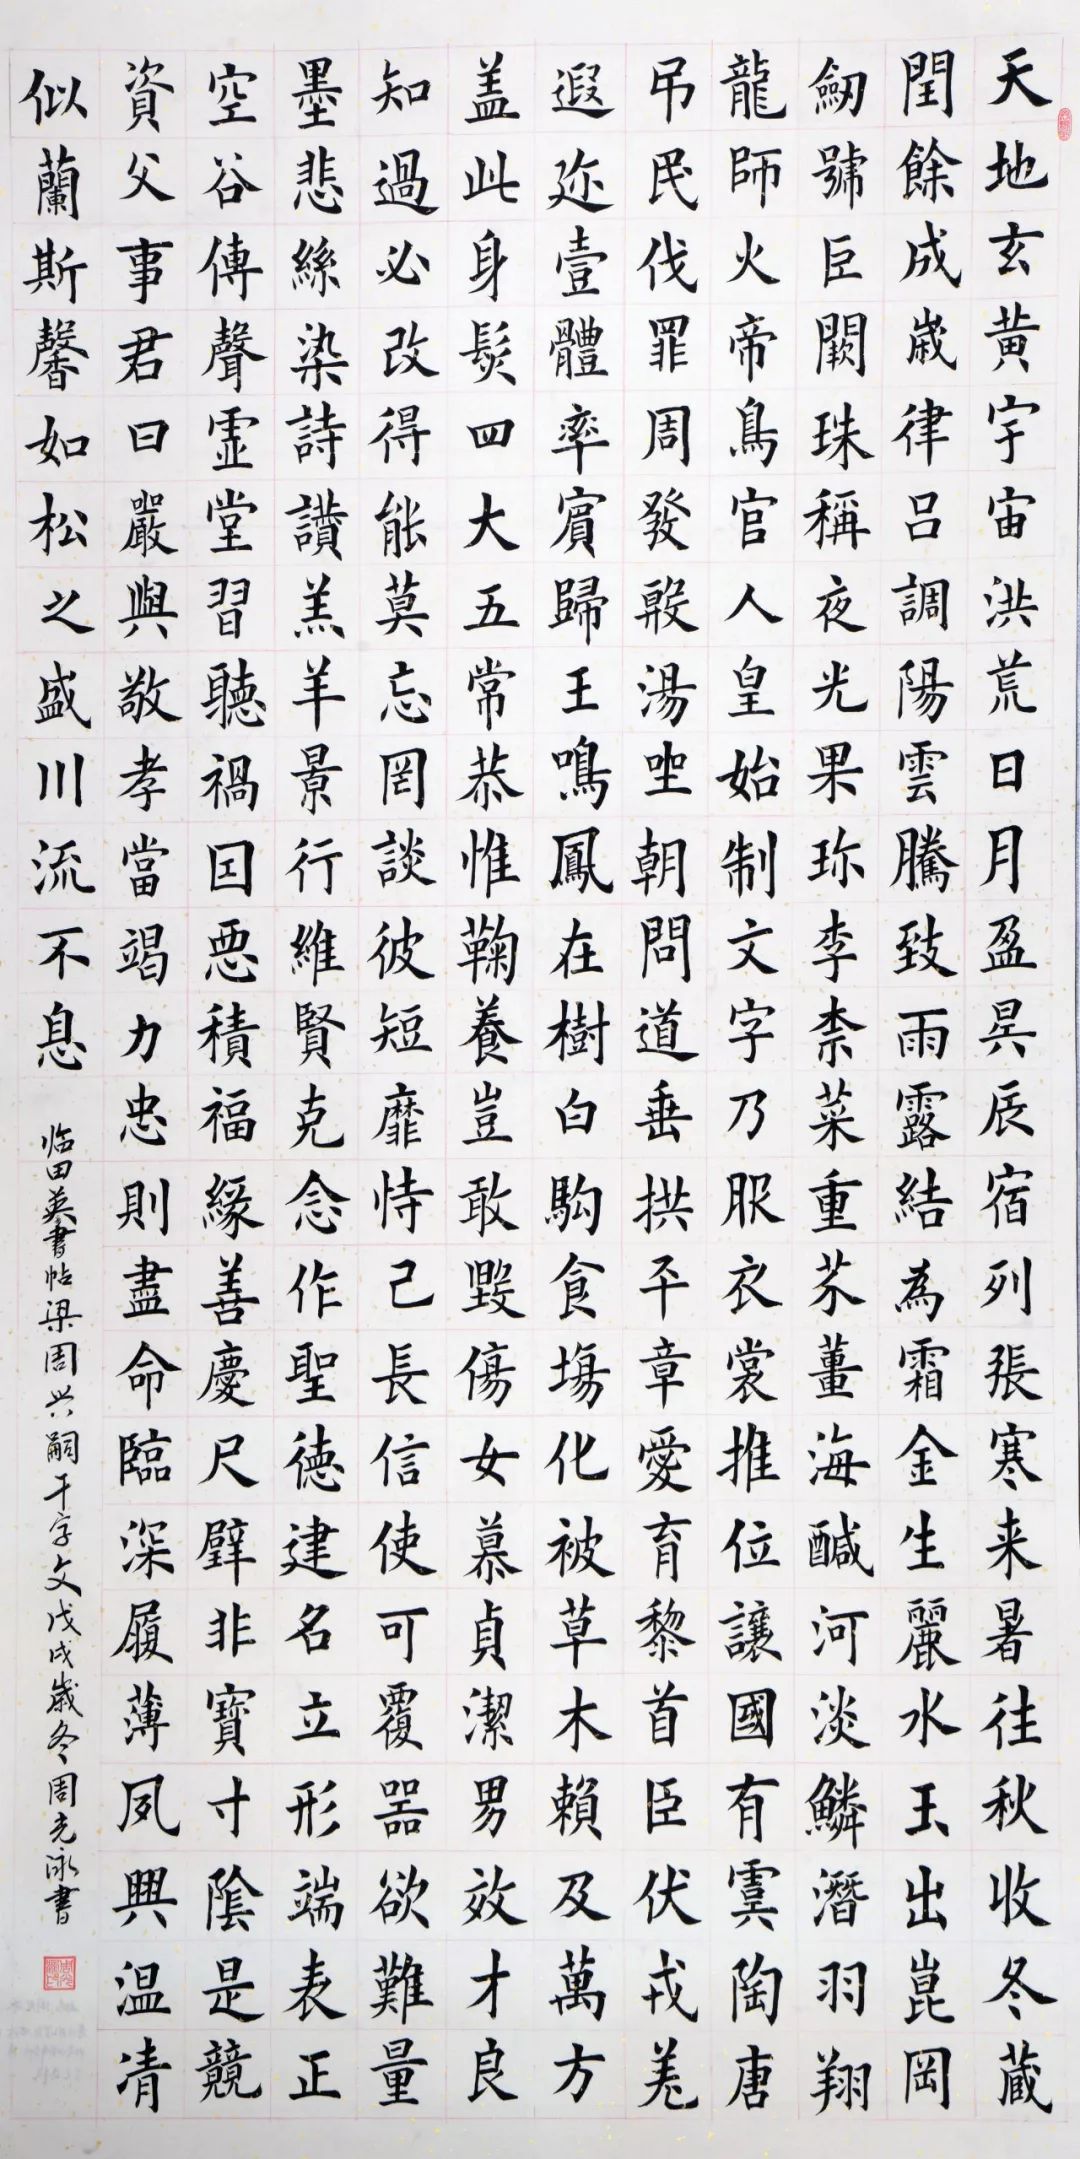 天地玄黃宇宙洪荒日月盈昃辰宿列張寒来暑往秋收冬蔵
閏餘成歲律吕調陽雲騰致雨露結為霜金生麗水玉出崑岡
劒號巨闕珠稱夜光果珎李柰菜重芥薑海醎河淡鱗潛羽翔
龍師火帝鳥官人皇始制文字乃服衣裳推位讓國有虞陶唐
吊民伐罪周發殷湯坐朝問道垂拱平章愛育黎首臣伏戎羌
遐迩壹體率賓歸王鳴鳳在樹白駒食場化被草木賴及萬方
盖此身髮四大五常恭惟鞠養豈敢毀傷女慕貞潔男效才良
知過必改得能莫忘罔談彼短靡恃己長信使可覆器欲難量
墨悲絲染詩讚羔羊景行維賢克念作聖德建名立形端表正
空谷傳聲虛堂習聽禍因惡積福緣善慶尺璧非寶寸陰是競
資父事君曰嚴與敬孝當竭力忠則盡命臨深履薄夙興温凊
似蘭斯馨如松之盛川流不息
临田英書帖梁周兴嗣千字文戊戌歲冬周克泳書